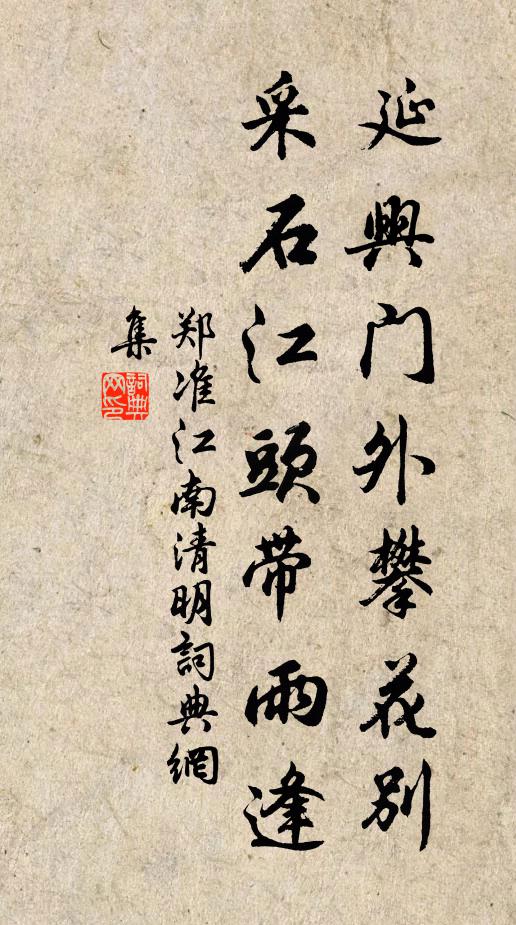 延興门外攀花别
采石江頭帶雨逢
郑准江南清明詞典網
集
詞典網印